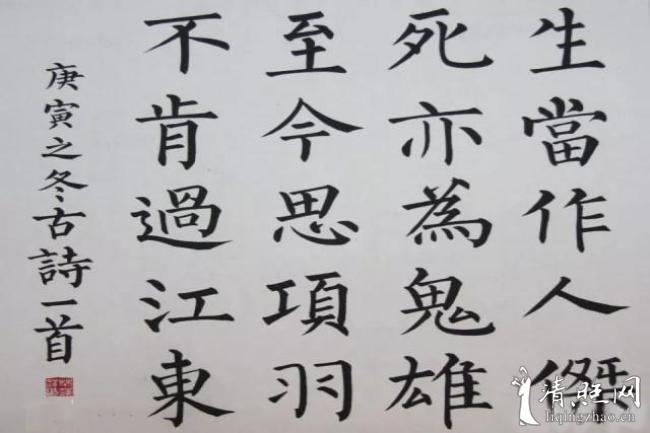 生當作人傑
死亦為鬼雄
至今思項羽
不肯過江東
庚寅之冬古詩一首
清照网
liqingzhao.cn